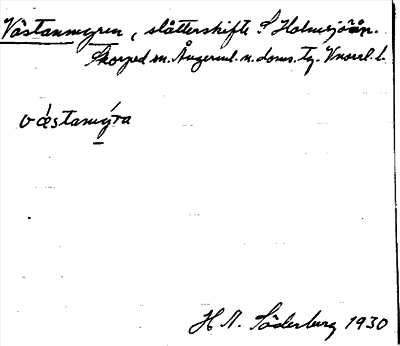 Västanmyren, slåttershifte S Holmsjöån.
Skorped sn. Ångerml. n. doms. tg. Vnorrl. l.
vǽstamýra
H N. Söderberg 1930